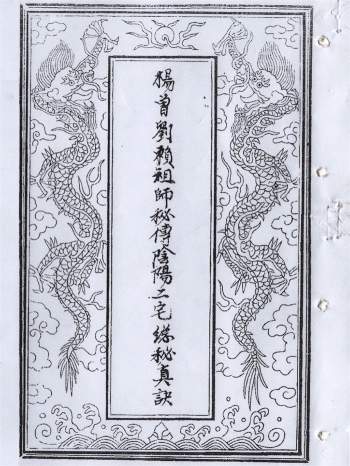 楊曾劉賴祖師秘傳陰陽二宅総秘真訣